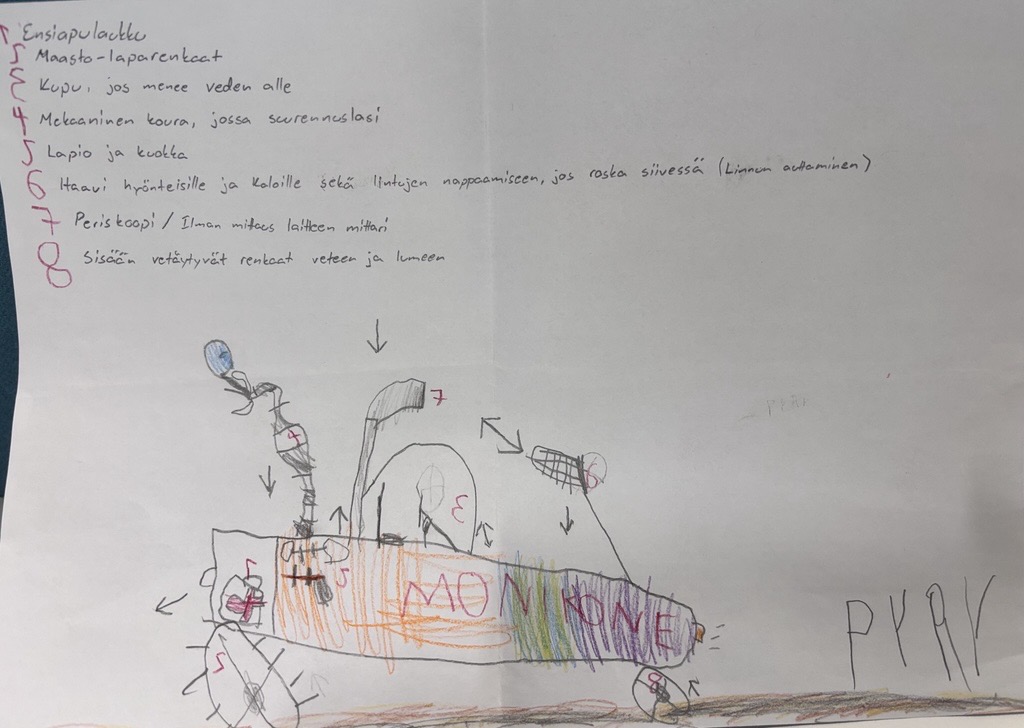 1 Ensiapulaukku
2 Maasto-laparenkaat
3 Kupu, jos menee veden alle
4 Mekaaninen koura, jossa suurennuslasi
5 Lapio ja kuokka
6 Haavi hyönteisille ja kaloille sekä lintujen nappaamiseen, jos roska siivessä (Linnun auttaminen)
7 Periskoopi / Ilman mitaus laitteen mittari
8 Sisään vetäytyvät renkaat veteen ja lumeen
7
4
6
3
1
5
MONIKONE
2
8
PYRY